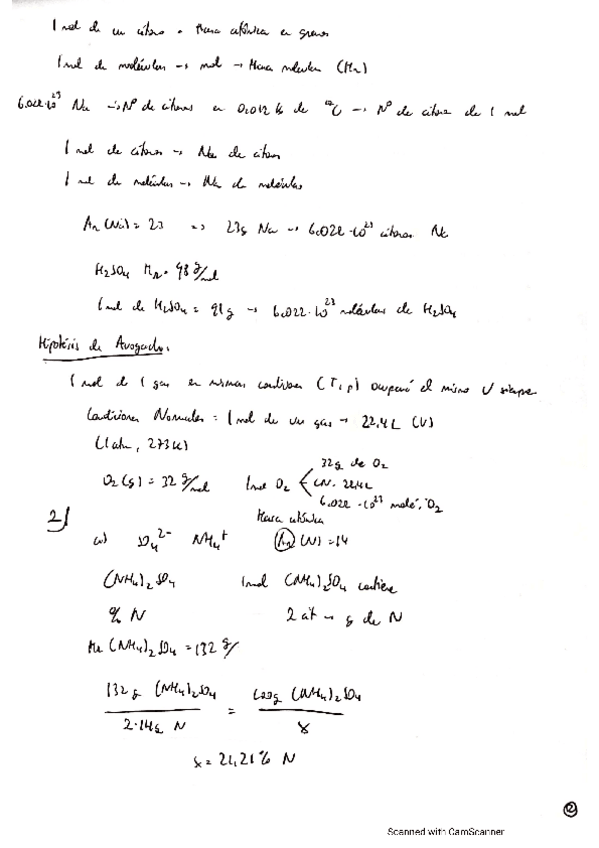 1 mol de un átomo = Masa atómica en gramos
1 mol de moléculas → mol → Masa molecular (Mr)
6.022·10²³ Na → Nº de átomos en 0.012 kg de ¹²C → Nº de átomos de 1 mol
1 mol de átomos → Na de átomos
1 mol de moléculas → Na de moléculas
Ar (Na) = 23 => 23g Na → 6.022·10²³ átomos Na
H₂SO₄ Mr = 98 g/mol
1 mol de H₂SO₄ = 98g → 6.022·10²³ moléculas de H₂SO₄
Hipótesis de Avogadro.
1 mol de 1 gas en mismas condiciones (T, p) ocupará el mismo V siempre
Condiciones Normales = 1 mol de un gas → 22.4 L (V)
(1 atm, 273 K)
32g de O₂
O₂ (g) = 32 g/mol 1 mol O₂ CN. 22.4L
6.022·10²³ moléc. O₂
2) Masa atómica
a) SO₄²⁻ NH₄⁺ Ar (N) = 14
(NH₄)₂SO₄ 1 mol (NH₄)₂SO₄ contiene
% N 2 at → g de N
Mr (NH₄)₂SO₄ = 132 g/
132g (NH₄)₂SO₄ 100g (NH₄)₂SO₄
=
2·14g N x
x = 21,21% N
12
Scanned with CamScanner